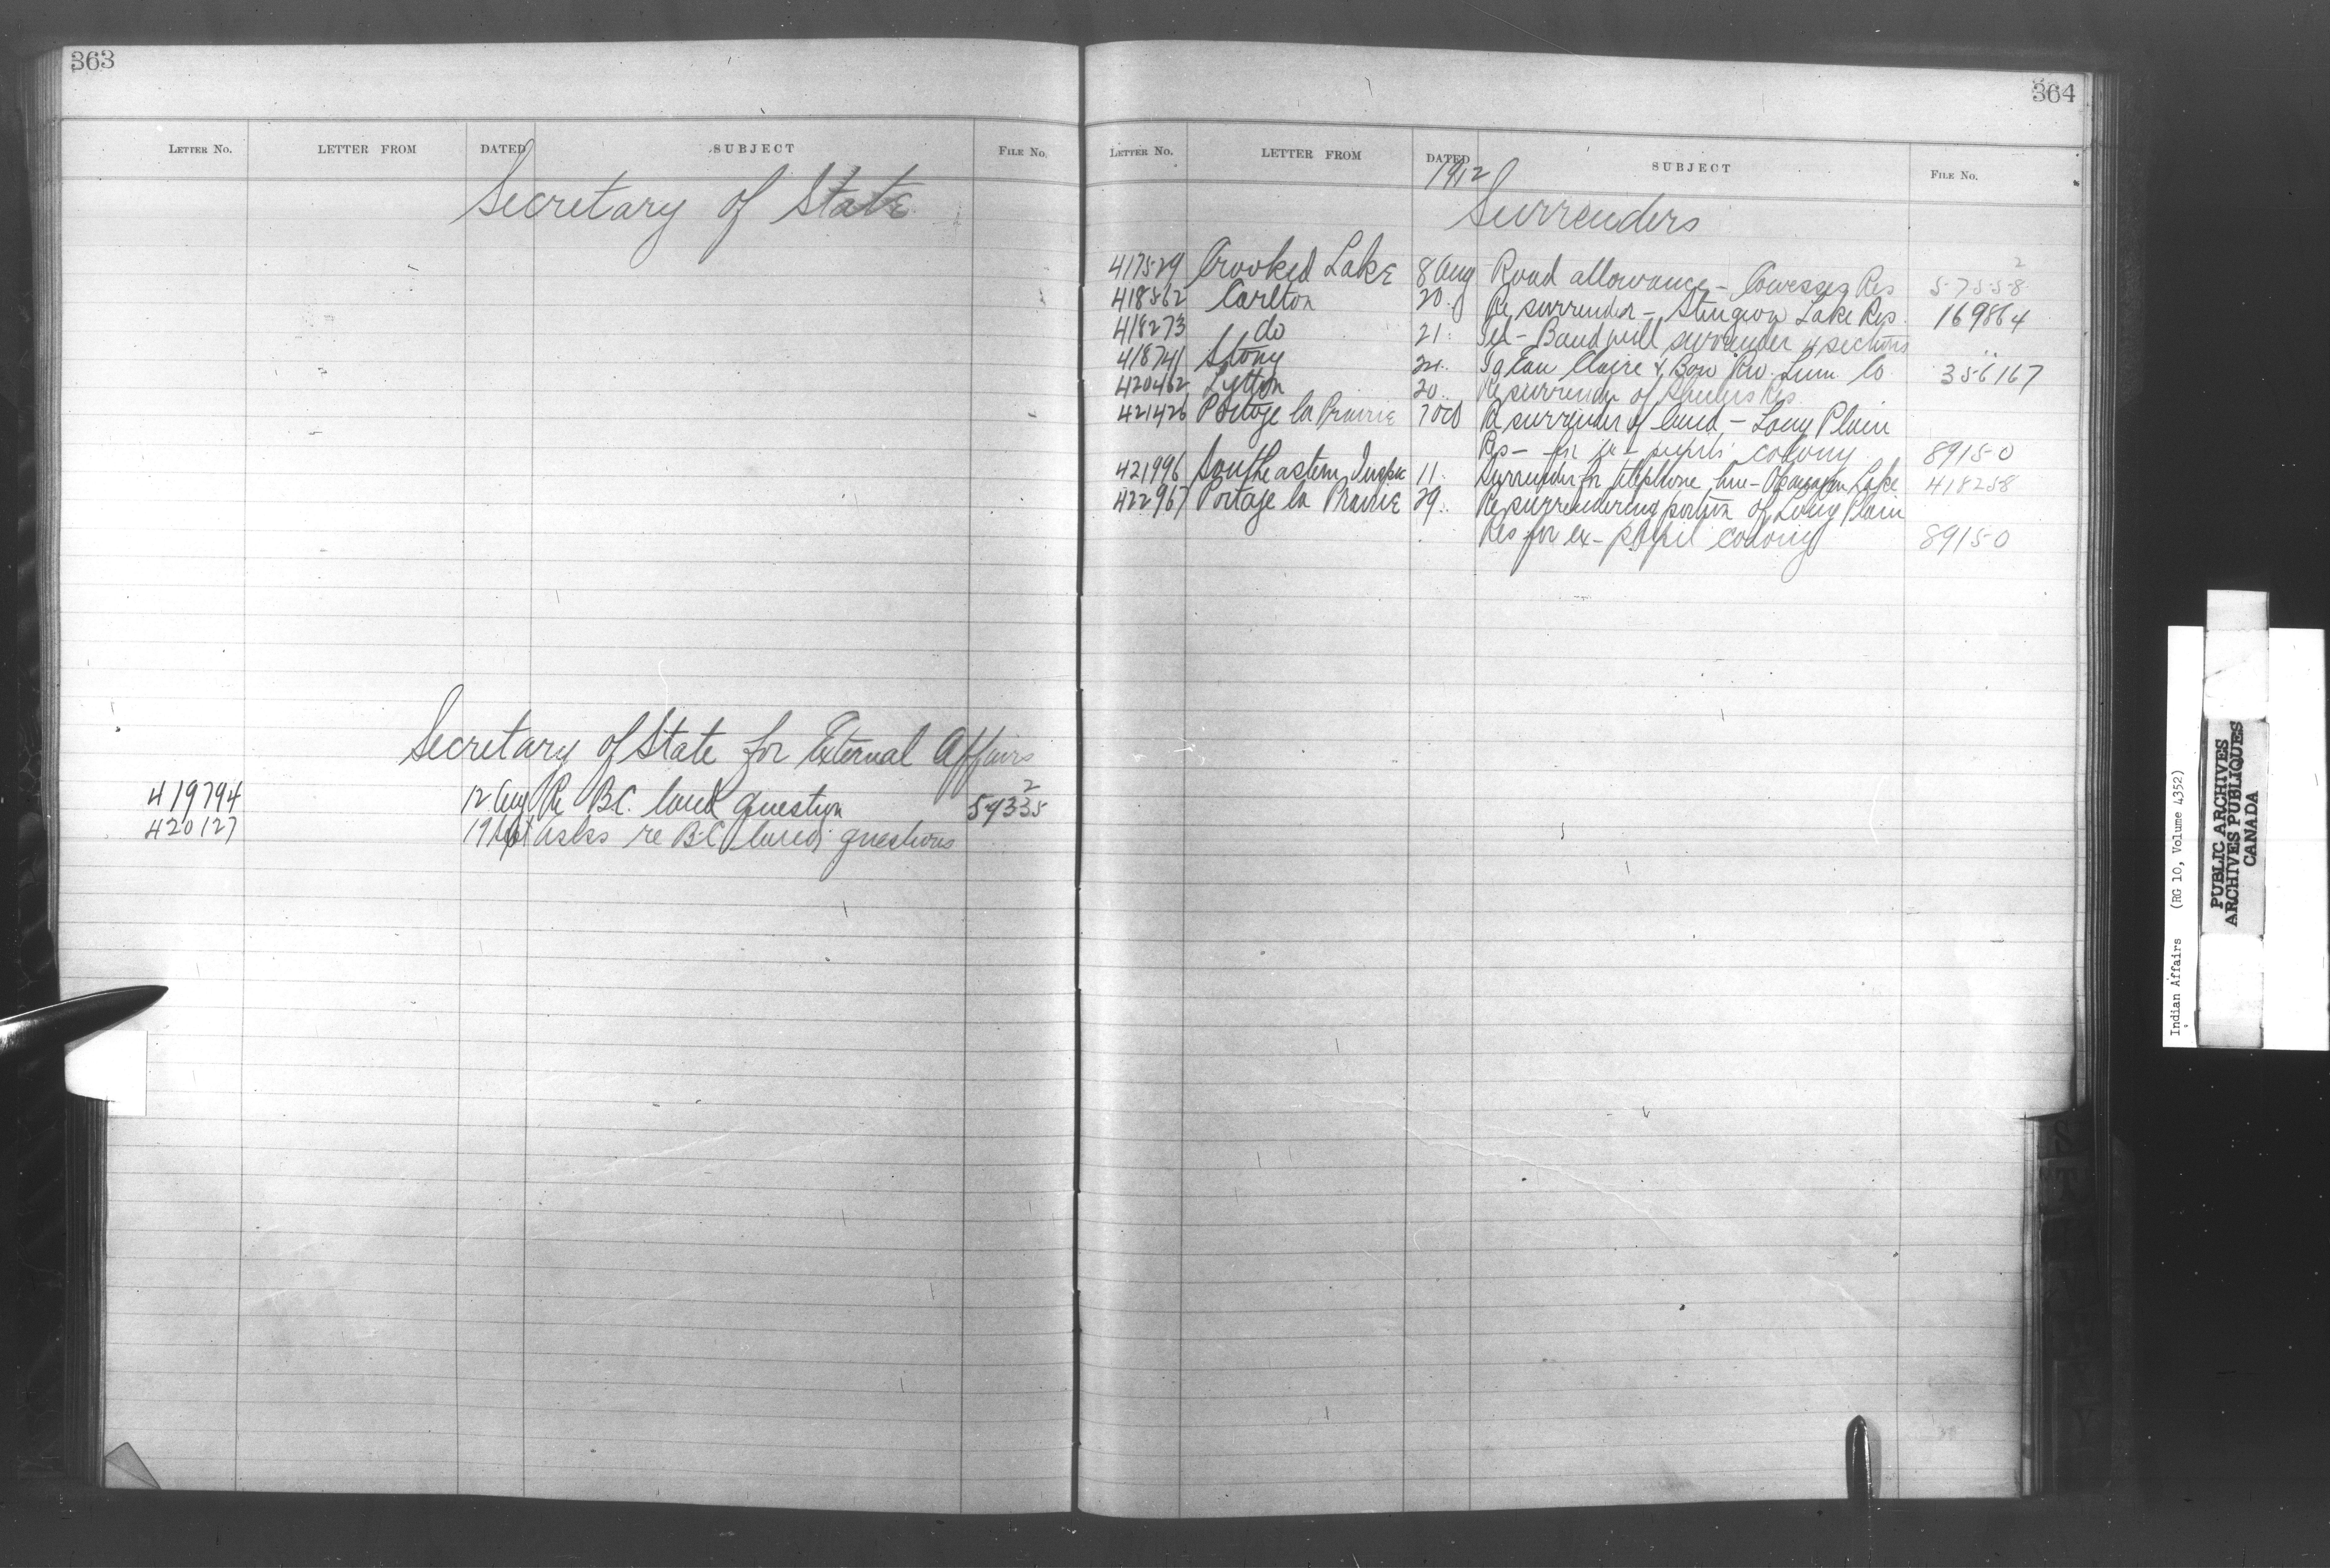 363
LETTER NO. LETTER FROM DATED SUBJECT FILE NO.
Secretary of State
Secretary of State for External Affairs
419794 12 Aug Re B.C. land question 59335 2
420127 19 Sept asks re B.C. land questions
364
LETTER NO. LETTER FROM DATED SUBJECT FILE NO.
1912
Surrenders
417529 Crooked Lake 8 Aug Road allowance - Cowesses Res 57558 2
418562 Carlton 20. Re surrender - Sturgeon Lake Res. 169864
418273 do 21. Tel - Band will surrender 4 sections "
418741 Stony 24. Eau Claire & Bow Riv. Lum. Co 356167
420462 Lytton 20.. Re surrender of Res.
421426 Portage la Prairie 7 Oct Re surrender of land - Long Plain
Res - for ex-pupils' colony 89150
421996 Southeastern Inspec 11. Surrender for telephone line - Lake 418258
422967 Portage la Prairie 29. Re surrendering portion of Long Plain
Res for ex-pupil colony 89150
Indian Affairs (RG 10, Volume 4352)
PUBLIC ARCHIVES
ARCHIVES PUBLIQUES
CANADA